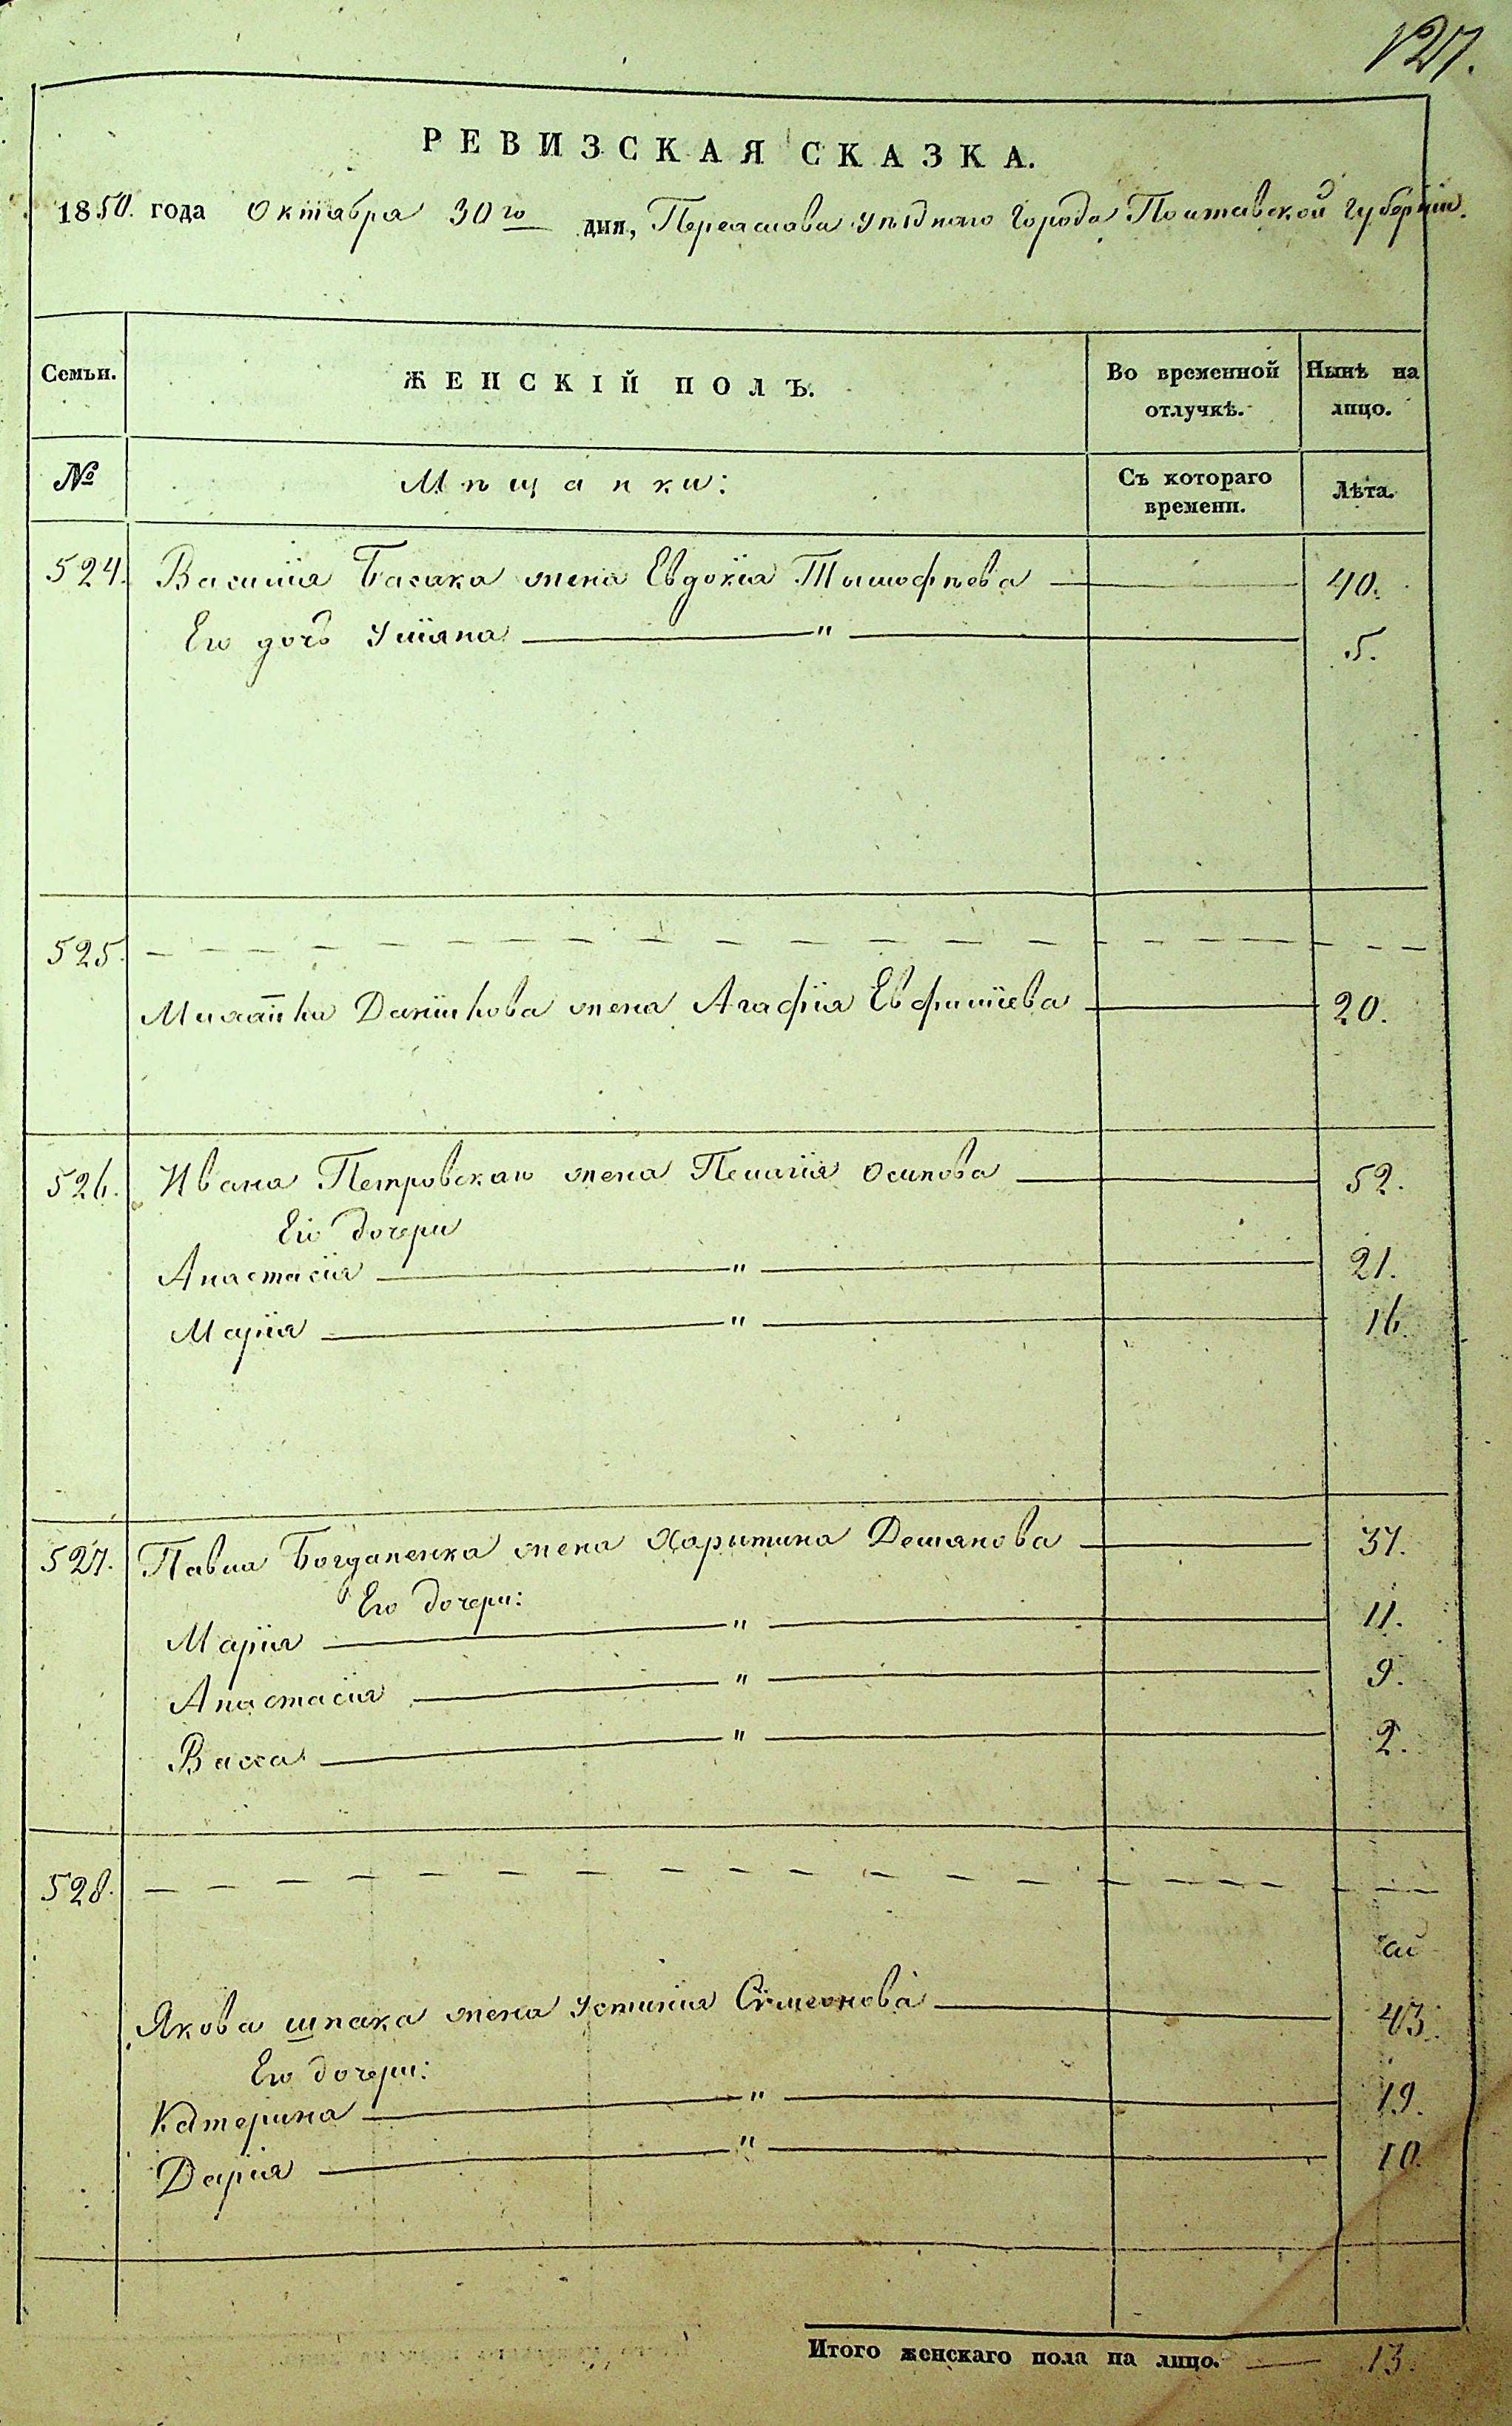 127.
РЕВИЗСКАЯ СКАЗКА.
1850. года Октября 30го дня, Переаслова уѣзднаго города Полтавской губерніи.
Семьи. ЖЕНСКІЙ ПОЛЪ. Во временной отлучкѣ. Нынѣ на лицо.
№ Мѣщанки: Съ котораго времени. Лѣта.
524. Василія Басака жена Евдокія Тымофѣева 40.
Его дочь Уліяна " 5.
525.
Данішкова жена Агафія Евфиміева 20.
526. Ивана Петровскаго жена Пелагія Осипова 52.
Его дочери
Анастасія " 21.
Марія " 16.
527. Павла Богданенка жена Харитина Демянова 37.
Его дочери:
Марія " 11.
Анастасія " 9.
Васса " 2.
528.
Якова Шпака жена Устинія Сѵмеонова 43.
Его дочери:
Катерина " 19.
Дарія " 10.
Итого женскаго пола на лицо. 13.